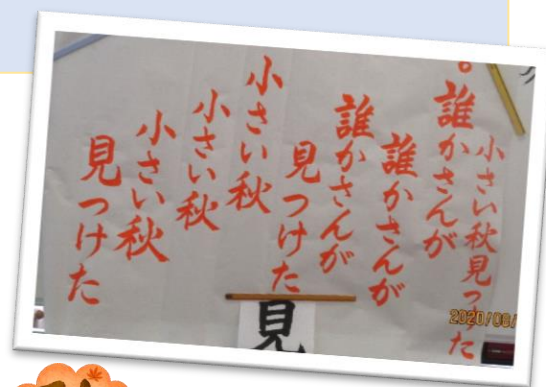 小さい秋見つけた
誰かさんが
誰かさんが
誰かさんが
見つけた
小さい秋
小さい秋
小さい秋
見つけた
見
2020/